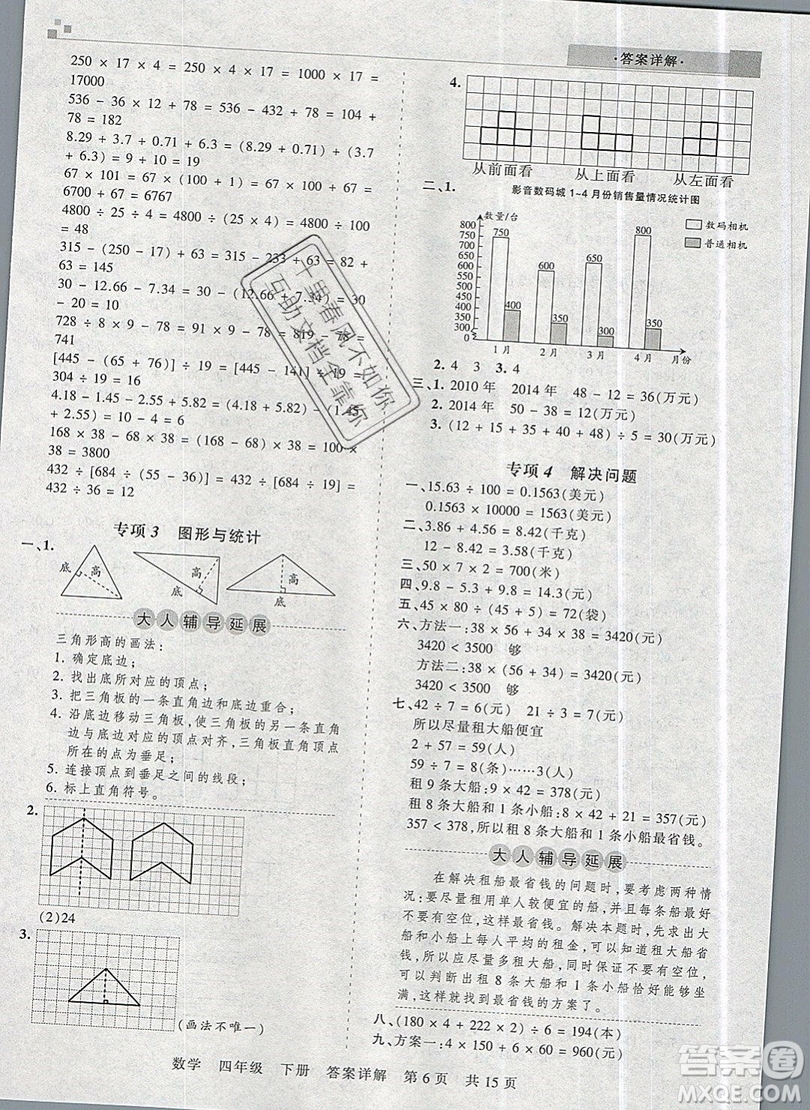 ·答案详解·
250 × 17 × 4 = 250 × 4 × 17 = 1000 × 17 =
17000
536 - 36 - 32 + 78 = 536 - 432 + 78 = 104 +
78 = 182
8.29 + 3.7 + 0.71 + 6.3 = (8.29 + 0.71) + (3.7
+ 6.3) = 9 + 10 = 19
67 × 101 = 67 × (100 + 1) = 67 × 100 + 67 × 1
= 6700 + 67 = 6767
4800 ÷ 25 ÷ 4 = 4800 ÷ (25 × 4) = 4800 ÷ 100
= 48
315 - (315 - 230) = 315 - 315 + 230 = 230
30 - 12.66 - 7.34 = 30 - (12.66 + 7.34) = 30
728 ÷ 8 + 
741
[459 - (65 + 76)] ÷ 
= 19
4.18 - 1.45 - 2.55 + 5.82 = (4.18 + 5.82) - (1.45
+ 2.55) = 10 - 4 = 6
168 × 38 - 38 × 68 = 38 × (168 - 68) = 100 ×
38 = 3800
432 ÷ [584 - (55 + 
= 2
专项 3 图形与统计
一、1.
底 高
高 底
高 底
大人辅导延展
三角形高的画法:
1. 确定底边;
2. 找出底所对应的顶点;
3. 把三角板的一条直角边和底边重合;
4. 沿底边移动三角板,使三角板的另一条直角
边与底边对应的顶点对齐,三角板直角顶点
所在的点为垂足;
5. 连接顶点到垂足之间的线段;
6. 标上直角符号。
2.
(2)24
3.
(画法不唯一)
4.
从前面看 从上面看 从左面看
二、1. 影音数码城 1~4 月份销售量情况统计图
数量/台
数码相机
普通相机
800
750
700
650
600
550
500
450
400
350
300
250
200
150
100
0
750 400 500 300 600 300 800 350
1 月 2 月 3 月 4 月 月份
2. 4 3 3. 4
三、1. 2010 年 2014 年 48 - 12 = 36(万元)
2. 2014 年 50 - 38 = 12(万元)
3. (12 + 15 + 35 + 40 + 48) ÷ 5 = 30(万元)
专项 4 解决问题
一、15.63 ÷ 100 = 0.1563(美元)
0.1563 × 10000 = 1563(美元)
二、3.86 + 4.56 = 8.42(千克)
12 - 8.42 = 3.58(千克)
三、50 × (17 - 3) = 700(米)
四、9.8 - 5.3 + 9.8 = 14.3(元)
五、45 × 80 ÷ (45 + 5) = 72(袋)
六、方法一:38 × 56 + 34 × 38 = 3420(元)
3420 < 3500 够
方法二:(56 + 34) × 38 = 3420(元)
3420 < 3500 够
七、42 ÷ 7 = 6(元) 21 ÷ 3 = 7(元)
所以尽量租大船便宜
2 + 57 = 59(人)
59 ÷ 7 = 8(条)……3(人)
租 9 条大船:9 × 42 = 378(元)
租 8 条大船和 1 条小船:8 × 42 + 21 = 357(元)
357 < 378,所以租 8 条大船和 1 条小船最省钱。
大人辅导延展
在解决租船最省钱的问题时,要考虑两种情
况:尽量租用单人较便宜的船,如果坐满没有空
位,这样最省钱;如果不能坐满,尽可能使船上没
有或少有空位,这样最省钱。解决本题时,先求大
船和小船上每人平均的租金,可知大船单人较便
宜,所以应尽量多租大船;再根据有剩余的情况,
可以判断出租 8 条大船和 1 条小船恰好能坐
满,这时就找到最省钱的方案了。
八、(180 × 4 + 222 × 2) ÷ 6 = 194(本)
九、方案一:(40 + 5) × 6 × 8 = 2160(元)
数学 四年级 下册 答案详解 第 6 页 共 15 页
千里春风不如你
互助文档全靠你
答案圈
MXQE.COM